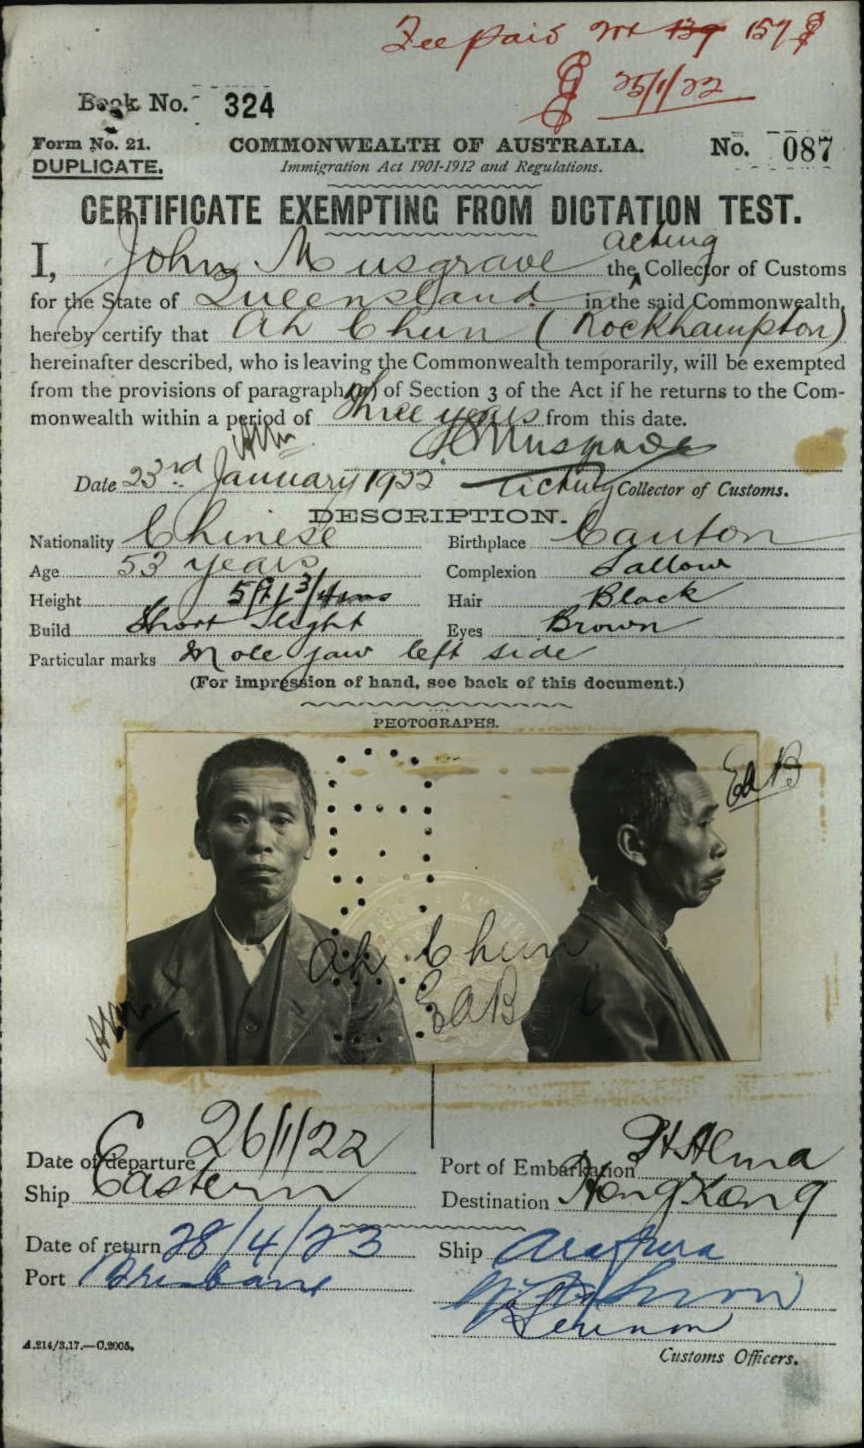 Fee paid 139 157
25/1/22
Book No. 324
Form No. 21. COMMONWEALTH OF AUSTRALIA. No. 087
DUPLICATE. Immigration Act 1901-1912 and Regulations.
CERTIFICATE EXEMPTING FROM DICTATION TEST.
acting
I, John Musgrave the Collector of Customs
for the State of Queensland in the said Commonwealth,
hereby certify that Ah Chun (Rockhampton)
hereinafter described, who is leaving the Commonwealth temporarily, will be exempted
from the provisions of paragraph (a) of Section 3 of the Act if he returns to the Com-
monwealth within a period of Three years from this date.
Musgrave
Date 23rd January 1922. Acting Collector of Customs.
DESCRIPTION.
Nationality Chinese Birthplace Canton
Age 53 years Complexion Sallow
Height 5ft 1 3/4ins Hair Black
Build Short Slight Eyes Brown
Particular marks Mole jaw left side
(For impression of hand, see back of this document.)
PHOTOGRAPHS.
EAB
Ah Chun
EAB
Date of departure 26/1/22 Port of Embarkation Pt Alma
Ship Eastern Destination Hong Kong
Date of return 28/4/23 Ship Arafura
Port Brisbane
A.214/3.17.—C.2005.
Customs Officers.